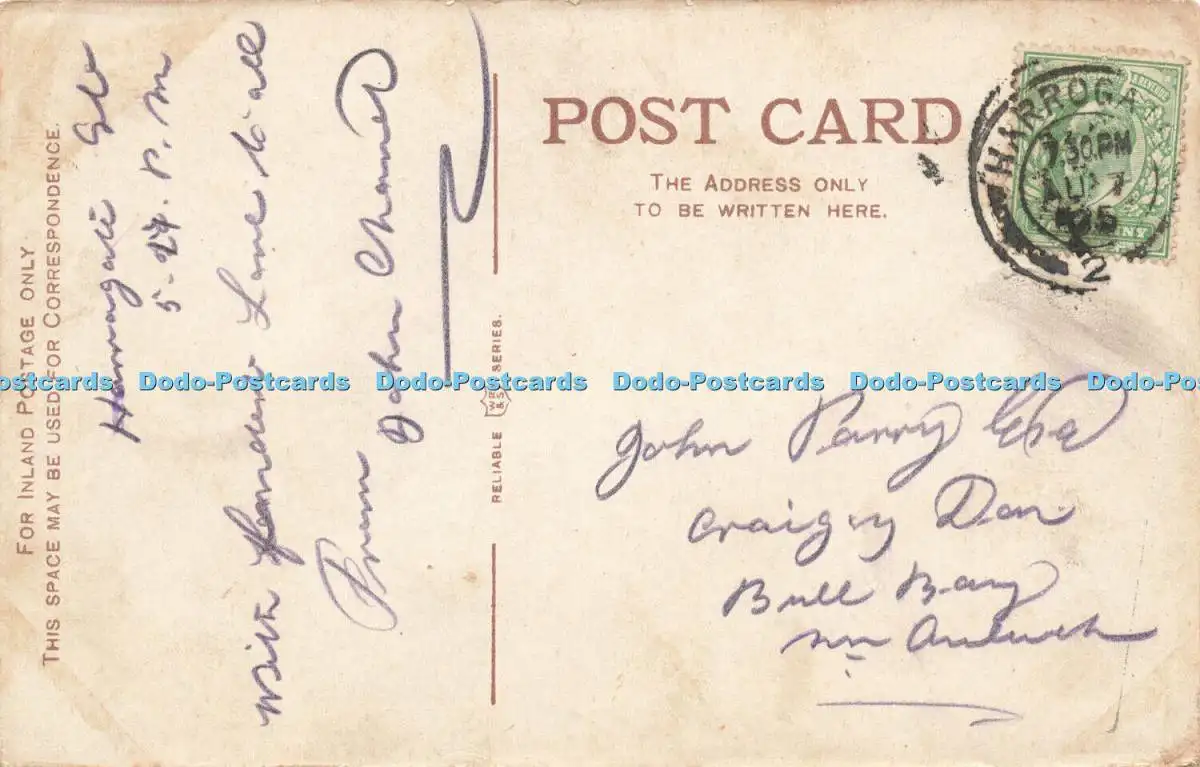 FOR INLAND POSTAGE ONLY
THIS SPACE MAY BE USED FOR CORRESPONDENCE.
Harrogate
5-24. P.M
With Love to all
From
John
RELIABLE WR & S SERIES.
POST CARD
THE ADDRESS ONLY
TO BE WRITTEN HERE.
HARROGA
7.30.PM
AU 7
05
2
John Parry
Craig y Don
Bull Bay
Dodo-Postcards Dodo-Postcards Dodo-Postcards Dodo-Postcards Dodo-Postcards Dodo-Postcards